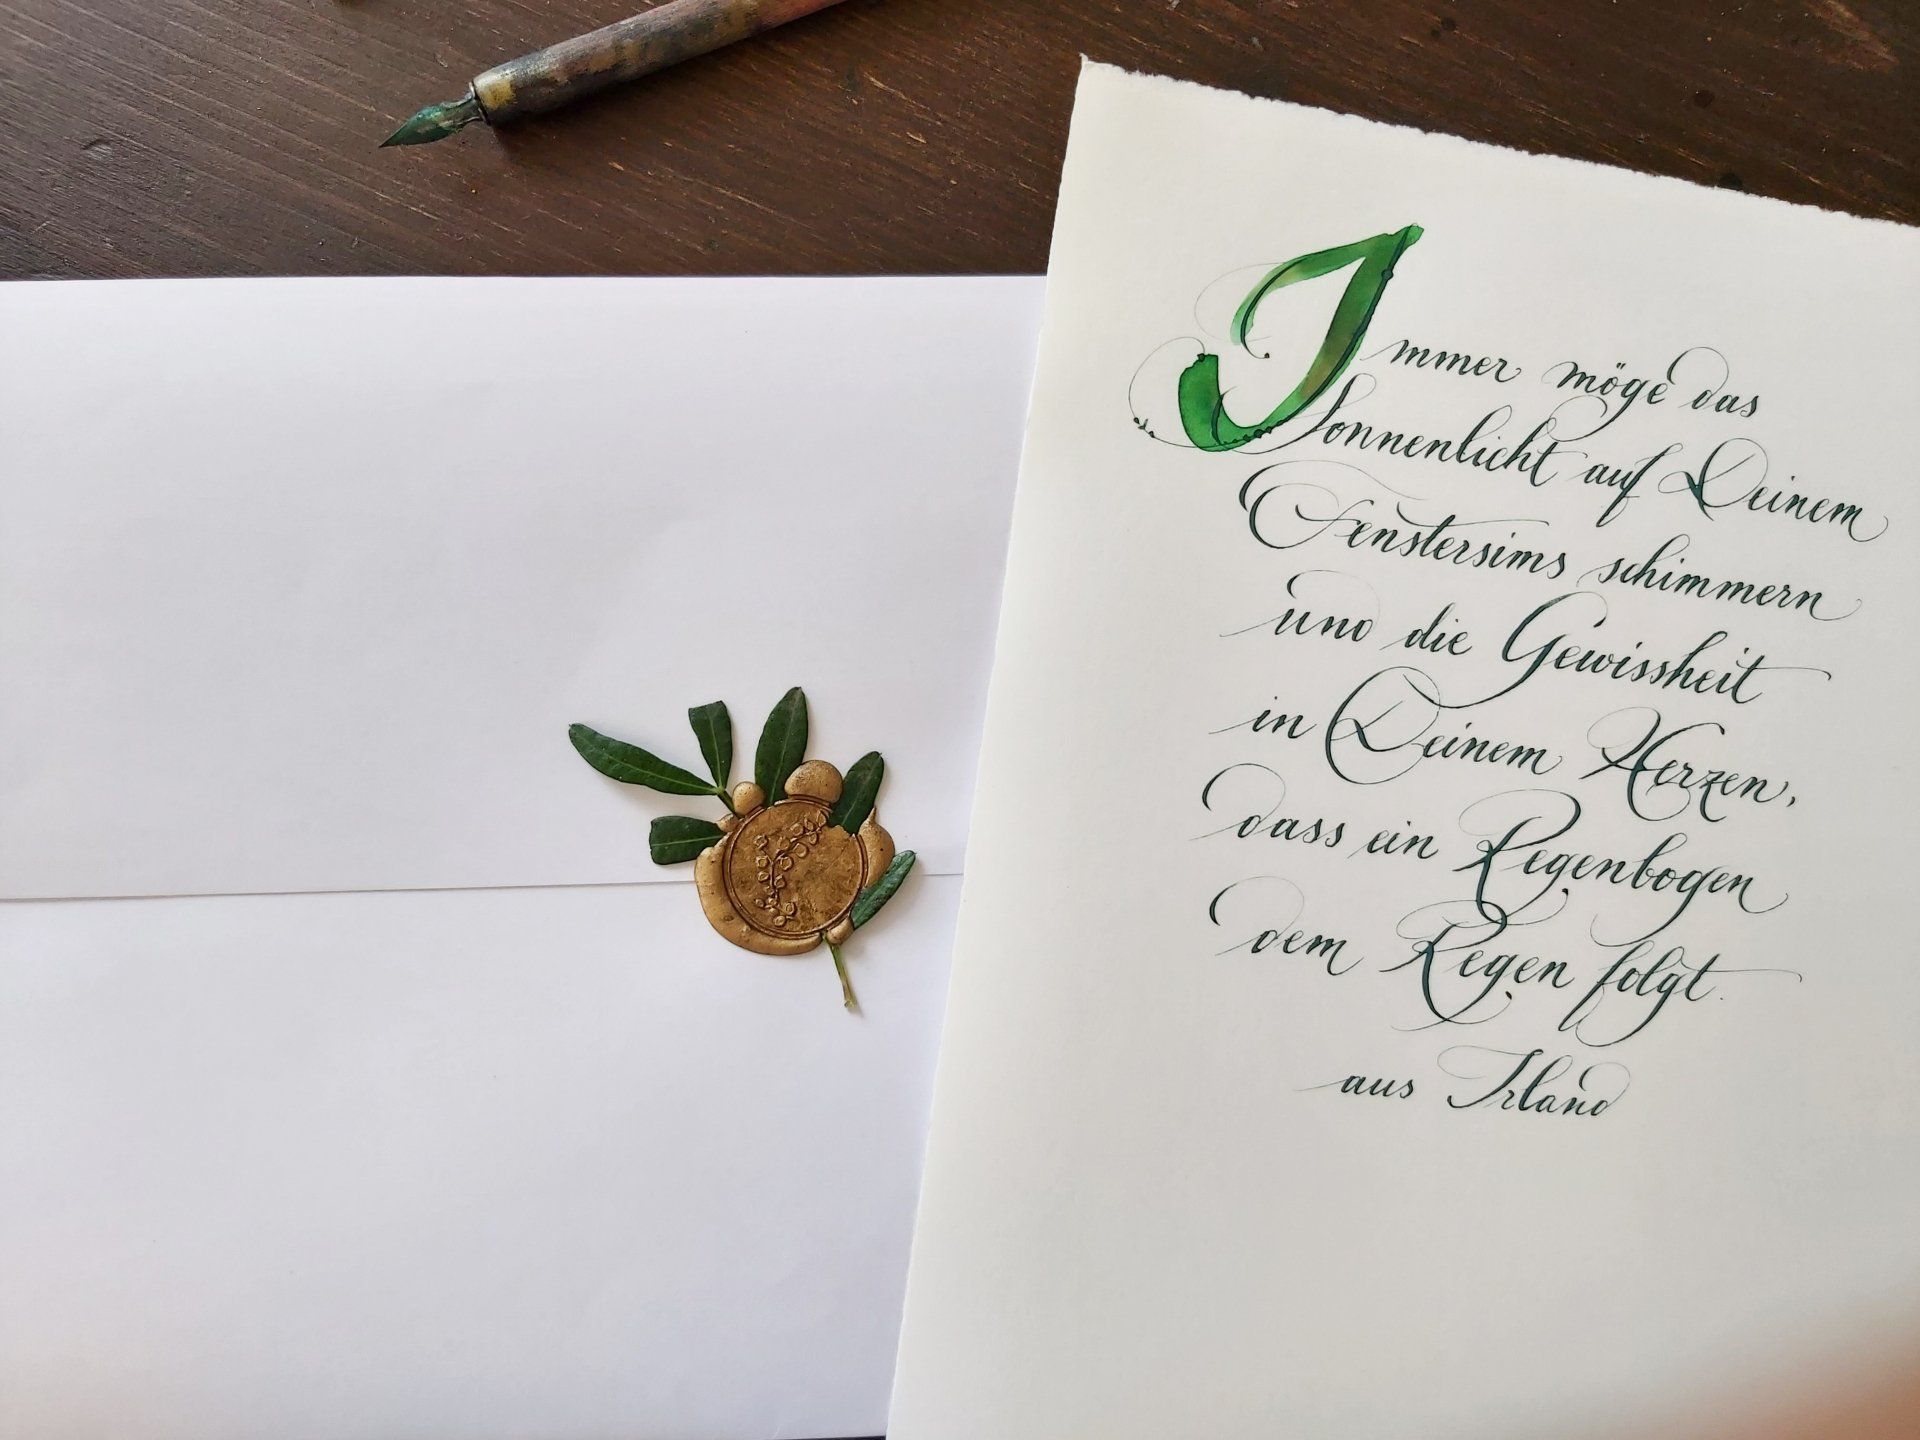 Immer möge das
Sonnenlicht auf Deinem
Fenstersims schimmern
und die Gewissheit
in Deinem Herzen,
dass ein Regenbogen
dem Regen folgt.
aus Irland